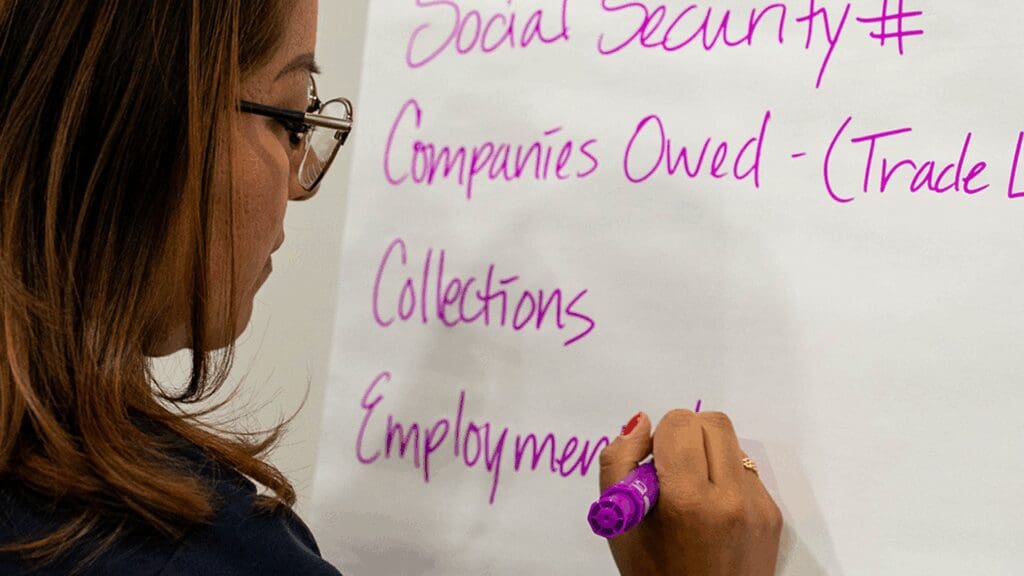 Social Security #
Companies Owed - (Trade L
Collections
Employmen